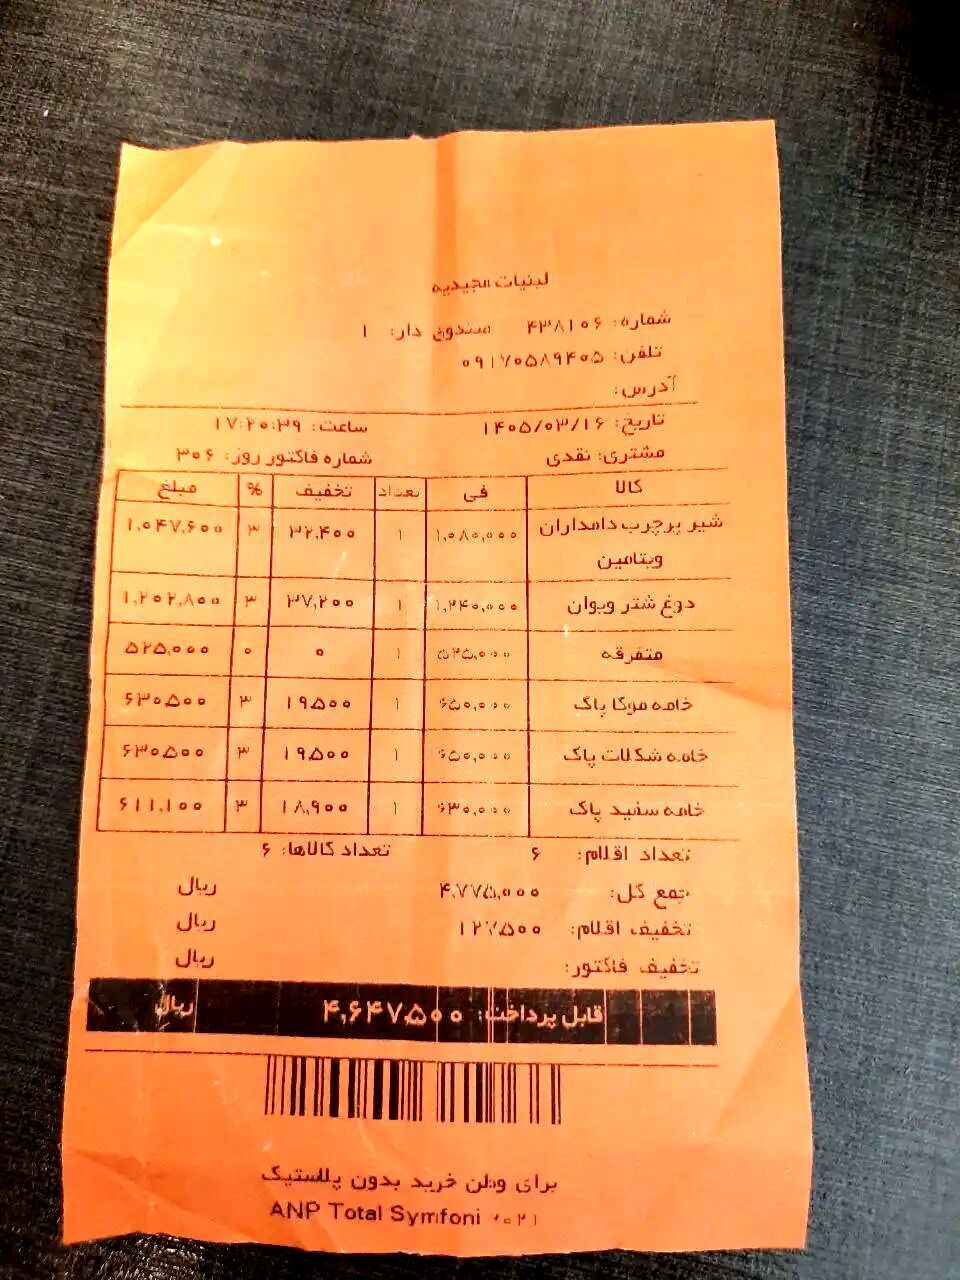 لبنیات مجیدیه
شماره: ۴۳۸۱۰۶ صندوق دار: ۱
تلفن: ۰۹۱۷۰۵۸۹۴۰۵
آدرس:
تاریخ: ۱۴۰۵/۰۳/۱۶ ساعت: ۱۷:۲۰:۳۹
مشتری: نقدی شماره فاکتور روز: ۳۰۶
کالا فی تعداد تخفیف % مبلغ
شیر پرچرب دامداران ۱,۰۸۰,۰۰۰ ۱ ۳۲,۴۰۰ ۳ ۱,۰۴۷,۶۰۰
ویتامین
دوغ شتر ویوان ۱,۲۴۰,۰۰۰ ۱ ۳۷,۲۰۰ ۳ ۱,۲۰۲,۸۰۰
متفرقه ۵۲۵,۰۰۰ ۱ ۰ ۰ ۵۲۵,۰۰۰
خامه موکا پاک ۶۵۰,۰۰۰ ۱ ۱۹,۵۰۰ ۳ ۶۳۰,۵۰۰
خامه شکلات پاک ۶۵۰,۰۰۰ ۱ ۱۹,۵۰۰ ۳ ۶۳۰,۵۰۰
خامه سفید پاک ۶۳۰,۰۰۰ ۱ ۱۸,۹۰۰ ۳ ۶۱۱,۱۰۰
تعداد اقلام: ۶ تعداد کالاها: ۶
جمع کل: ۴,۷۷۵,۰۰۰ ریال
تخفیف اقلام: ۱۲۷,۵۰۰ ریال
تخفیف فاکتور: ریال
قابل پرداخت: ۴,۶۴۷,۵۰۰ ریال
برای وطن خرید بدون پلاستیک
ANP Total Symfoni ۲۰۲۱